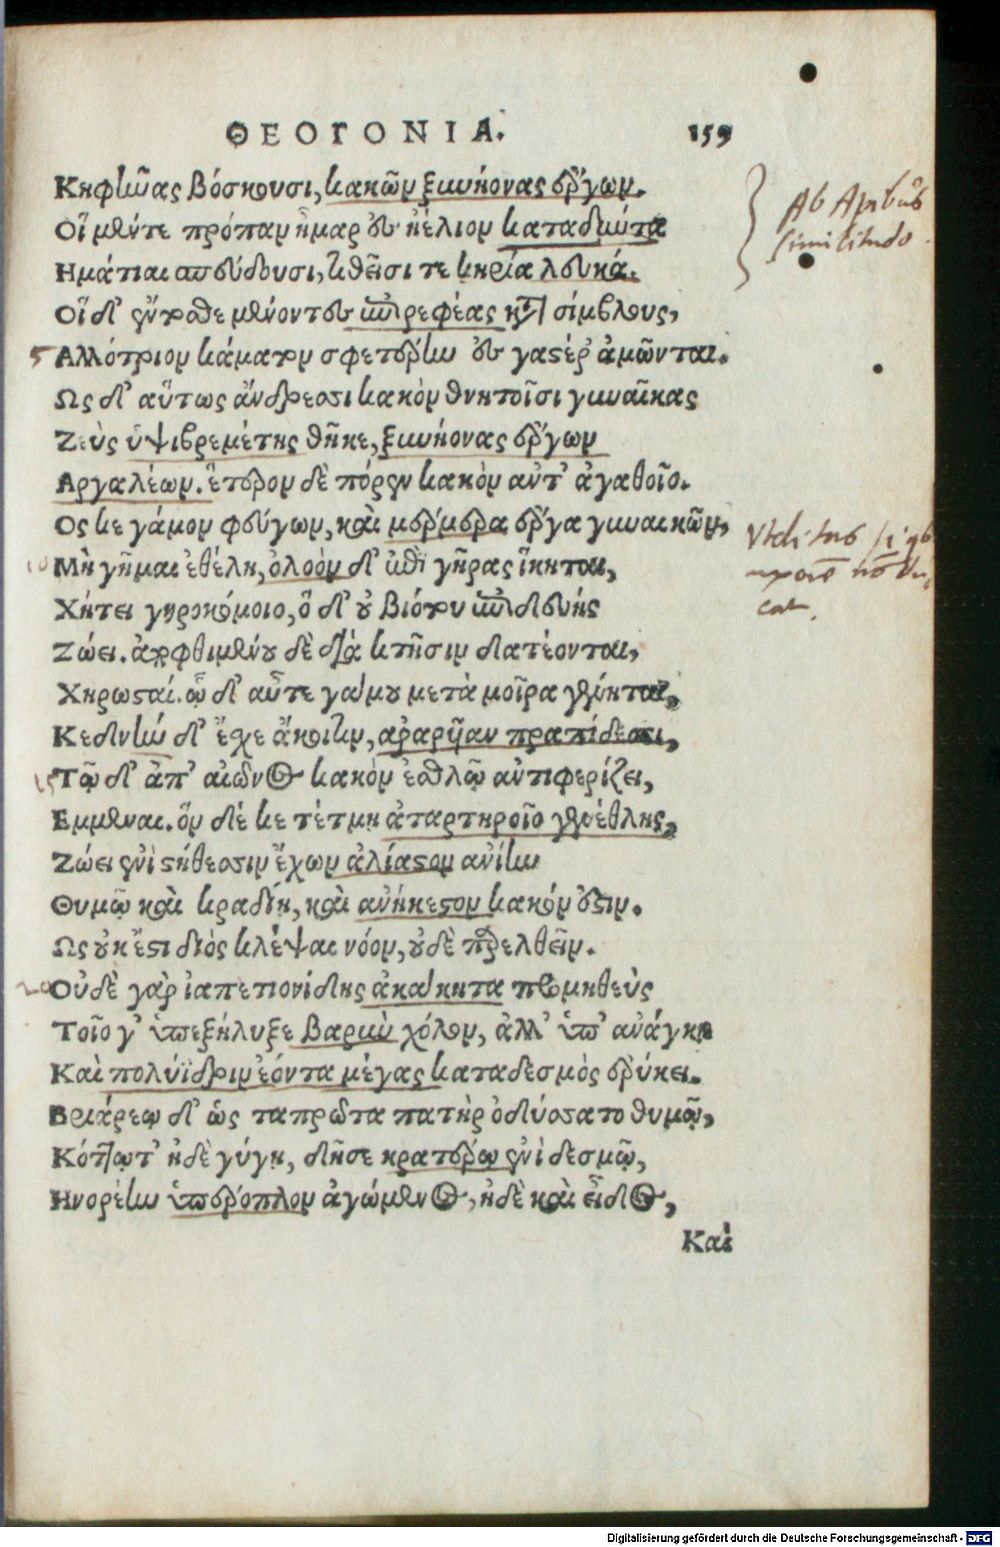 ΘΕΟΓΟΝΙΑ. 159
Κηφῆνας βόσκουσι, κακῶν ξυνήονας ἔργων.
Οἵ μέντε πρόπαν ἦμαρ ἐς ἠέλιον καταδύντα
Ημάτιαι σπεύδουσι, τιθεῖσί τε κηρία λευκά.
Οἵ δ' ἔντοσθε μένοντες ἐπηρεφέας κατὰ σίμβλους,
5 Αλλότριον κάματον σφετέρην ἐς γαστέρ' ἀμῶνται.
Ως δ' αὔτως ἄνδρεσσι κακὸν θνητοῖσι γυναῖκας
Ζεὺς ὑψιβρεμέτης θῆκε, ξυνήονας ἔργων
Αργαλέων. ἕτερον δὲ πόρεν κακὸν αὐτ' ἀγαθοῖο.
Ος κε γάμον φεύγων, καὶ μέρμερα ἔργα γυναικῶν,
10 Μὴ γῆμαι ἐθέλῃ, ὀλοὸν δ' ἐπὶ γῆρας ἵκηται,
Χήτει γηροκόμοιο, ὅ δ' οὐ βιότου ἐπιδευής
Ζώει. ἀποφθιμένου δὲ διὰ κτῆσιν δατέονται,
Χηρωσταί. ᾧ δ' αὖτε γάμου μετὰ μοῖρα γένηται,
Κεδνὴν δ' ἔχε ἄκοιτιν, ἀραρῆαν πραπίδεσσι,
15 Τῷ δ' ἀπ' αἰῶνος κακὸν ἐσθλῷ ἀντιφερίζει,
Εμμεναι. ὅν δέ κε τέτμῃ ἀταρτηροῖο γενέθλης,
Ζώει ἐνὶ στήθεσσιν ἔχων ἀλίαστον ἀνίην
Θυμῷ καὶ κραδίῃ, καὶ ἀνήκεστον κακόν ἐστιν.
Ως οὐκ ἔστι διὸς κλέψαι νόον, οὐδὲ παρελθεῖν.
20 Οὐδὲ γὰρ ἰαπετιονίδης ἀκάκητα προμηθεὺς
Τοῖο γ' ὑπεξήλυξε βαρὺν χόλον, ἀλλ' ὑπ' ἀνάγκης
Καὶ πολύϊδριν ἐόντα μέγας κατα δεσμὸς ἐρύκει.
Βριάρεῳ δ' ὡς ταπρῶτα πατὴρ ὀδύσσατο θυμῷ,
Κόττῳτ' ἠδὲ γύγῃ, δῆσε κρατερῷ ἐνὶ δεσμῷ,
Ηνορέην ὑπέροπλον ἀγώμενος, ἠδὲ καὶ εἶδος,
Καὶ
Ab Apibus
similitudo.